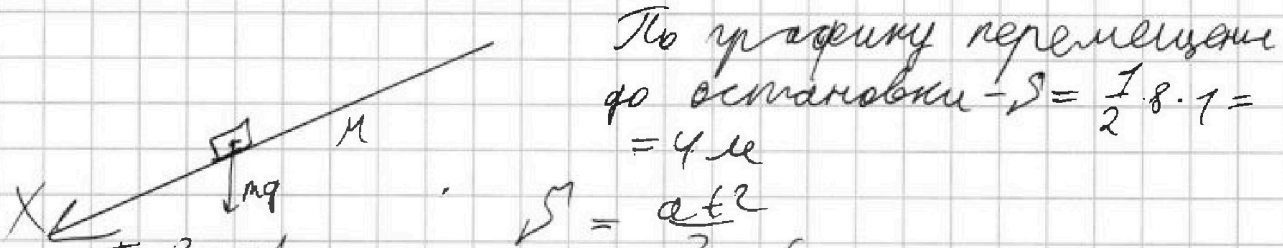 По графику перемещение
до остановки - S = 1/2 · 8 · 1 =
= 4 м
μ
mg
X
S = at²